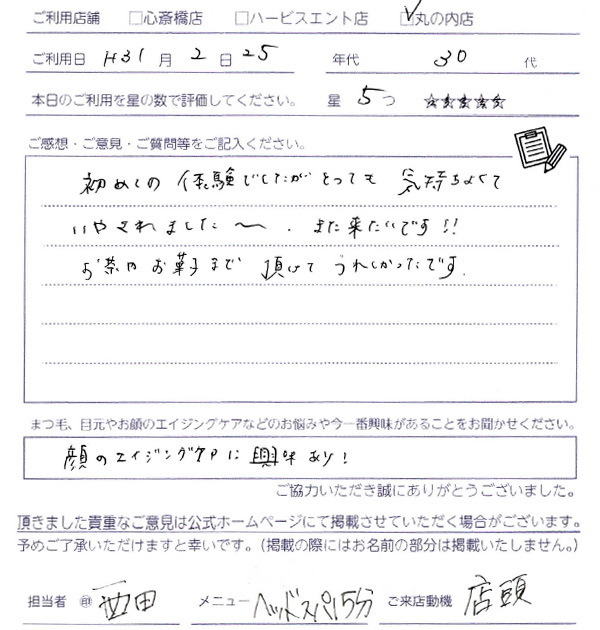 ご利用店舗 □心斎橋店 □ハービスエント店 ☑丸の内店
ご利用日 H31 月 2 日 25 年代 30 代
本日のご利用を星の数で評価してください。 星 5 つ ☆☆☆☆☆
ご感想・ご意見・ご質問等をご記入ください。
初めての 体験でしたが とっても 気持ちよくて
いやされました〜. また来たいです!!
お茶や お菓子まで 頂けて うれしかったです.
まつ毛、目元やお顔のエイジングケアなどのお悩みや今一番興味があることをお聞かせください。
顔のエイジングケアに興味あり!
ご協力いただき誠にありがとうございました。
頂きました貴重なご意見は公式ホームページにて掲載させていただく場合がございます。
予めご了承いただけますと幸いです。(掲載の際にはお名前の部分は掲載いたしません。)
担当者 ㊞ 西田 メニュー ヘッドスパ15分 ご来店動機 店頭